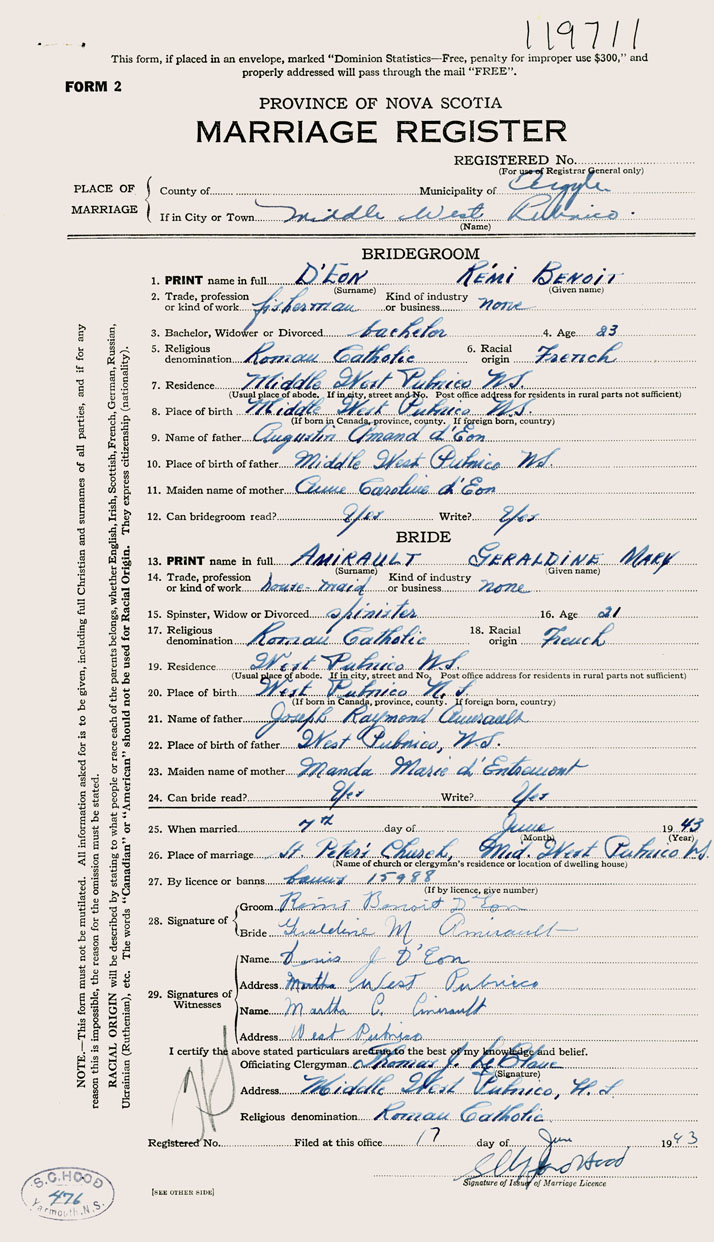 119711
This form, if placed in an envelope, marked "Dominion Statistics—Free, penalty for improper use $300," and
properly addressed will pass through the mail "FREE".
FORM 2
PROVINCE OF NOVA SCOTIA
MARRIAGE REGISTER
REGISTERED No.
(For use of Registrar General only)
PLACE OF MARRIAGE
County of Municipality of Argyle
If in City or Town Middle West Pubnico
(Name)
BRIDEGROOM
1. PRINT name in full D'EON RÉMI BENOIT
(Surname) (Given name)
2. Trade, profession or kind of work fisherman Kind of industry or business none
3. Bachelor, Widower or Divorced bachelor 4. Age 23
5. Religious denomination Roman Catholic 6. Racial origin French
7. Residence Middle West Pubnico N.S.
(Usual place of abode. If in city, street and No. Post office address for residents in rural parts not sufficient)
8. Place of birth Middle West Pubnico N.S.
(If born in Canada, province, county. If foreign born, country)
9. Name of father Augustin Amand d'Eon
10. Place of birth of father Middle West Pubnico N.S.
11. Maiden name of mother Anne Caroline d'Eon
12. Can bridegroom read? Yes Write? Yes
BRIDE
13. PRINT name in full AMIRAULT GERALDINE MARY
(Surname) (Given name)
14. Trade, profession or kind of work house-maid Kind of industry or business none
15. Spinster, Widow or Divorced spinster 16. Age 21
17. Religious denomination Roman Catholic 18. Racial origin French
19. Residence West Pubnico N.S.
(Usual place of abode. If in city, street and No. Post office address for residents in rural parts not sufficient)
20. Place of birth West Pubnico N.S.
(If born in Canada, province, county. If foreign born, country)
21. Name of father Joseph Raymond Amirault
22. Place of birth of father West Pubnico, N.S.
23. Maiden name of mother Manda Marie d'Entremont
24. Can bride read? Yes Write? Yes
25. When married 7th day of June 1943
(Month) (Year)
26. Place of marriage St. Peter's Church, Mid. West Pubnico N.S.
(Name of church or clergyman's residence or location of dwelling house)
27. By licence or banns banns 15988
(If by licence, give number)
28. Signature of
Groom Rémi Benoit D'Eon
Bride Geraldine M Amirault
29. Signatures of Witnesses
Name Denis J D'Eon
Address West Pubnico
Name Martha C. Amirault
Address West Pubnico
I certify the above stated particulars are true to the best of my knowledge and belief.
Officiating Clergyman Thomas J. LeBlanc
(Signature)
Address Middle West Pubnico, N.S
Religious denomination Roman Catholic
Registered No. Filed at this office 17 day of June 1943
Signature of Issuer of Marriage Licence
[SEE OTHER SIDE]
S.C. HOOD
476
Yarmouth, N.S.
NOTE.—This form must not be mutilated. All information asked for is to be given, including full Christian and surnames of all parties, and if for any
reason this is impossible, the reason for the omission must be stated.
RACIAL ORIGIN will be described by stating to what people or race each of the parents belongs, whether English, Irish, Scottish, French, German, Russian,
Ukrainian (Ruthenian), etc. The words "Canadian" or "American" should not be used for Racial Origin. They express citizenship (nationality).